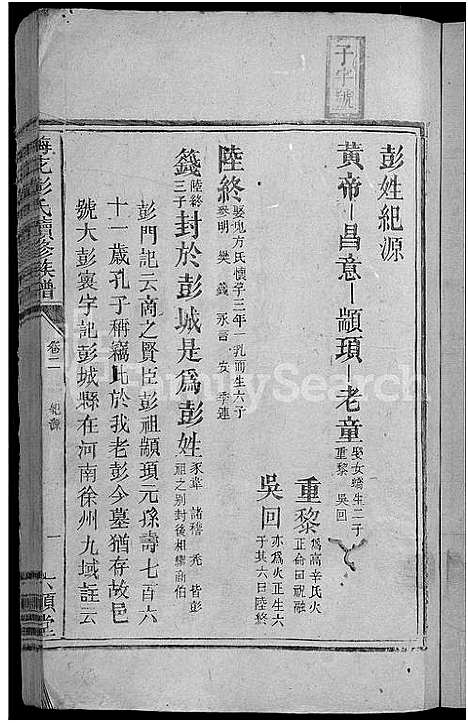 子字號
彭姓紀源
黃帝—昌意—顓頊—老童 娶女嬌生二子
重黎 吳回
重黎 為高辛氏火
正命曰祝融
吳回 亦為火正生六
子其六曰陸終
陸終 娶鬼方氏懷孕三年一乳而生六子
參明 樊 籛 永言 安 季連
籛 陸終
三子 封於彭城是為彭姓 豕韋 諸稽 禿 皆彭
祖之別封後相繼商伯
彭門記云商之賢臣彭祖顓頊元孫壽七百六
十一歲孔子稱竊比於我老彭今墓猶存故邑
號大彭寰宇記彭城縣在河南徐州九域註云
彭氏續修族譜
卷二
紀源
一
六順堂
FamilySearch